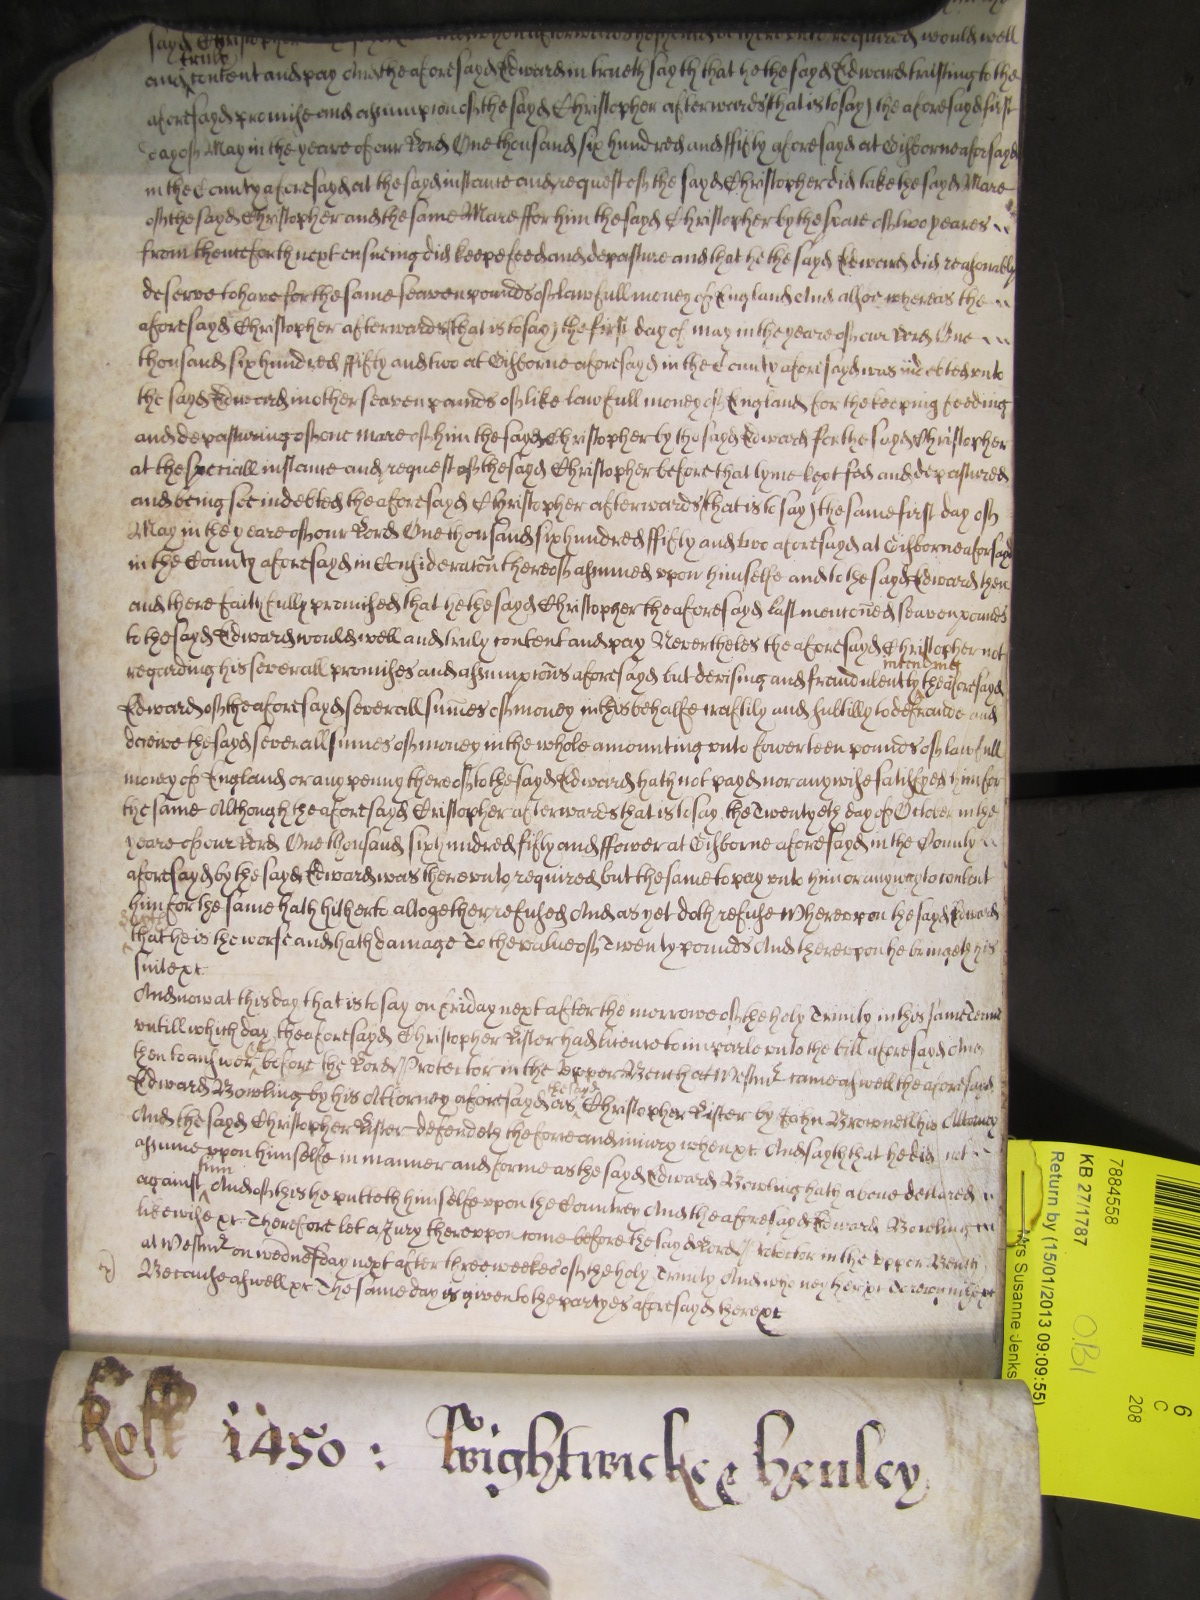 sayd Christopher afterwards he should be thereunto required would well
truly
and content and pay And the aforesayd Edward in trueth sayth that he the sayd Edward trusting to the
aforesayd promise and assumption of the sayd Christopher afterwards that is to say) the aforesayd first
day of May in the yeare of our Lord One thousand six hundred and ffifty aforesayd at Gisborne aforesayd
in the County aforesayd at the sayd instance and request of the sayd Christopher did take the sayd Mare
of the sayd Christopher and the same Mare ffor him the sayd Christopher by the space of two yeares
from thenceforth next ensueing did keepe feed and depasture and that he the sayd Edward did reasonably
deserve to have for the same seaven pounds of lawfull money of England And alsoe whereas the
aforesayd Christopher afterwards (that is to say) the first day of may in the yeare of our Lord One
thousand six hundred ffifty and two at Gisborne aforesayd in the County aforesayd was indebted unto
the sayd Edward in other seaven pounds of like lawfull money of England for the keeping feeding
and depasturing of one mare of him the sayd Christopher by the sayd Edward for the sayd Christopher
at the speciall instance and request of the sayd Christopher before that tyme kept fed and depastured
and being soe indebted the aforesayd Christopher afterwards (that is to say) the same first day of
May in the yeare of our Lord One thousand six hundred ffifty and two aforesayd at Gisborne aforesayd
in the County aforesayd in Consideracon thereof assumed upon himselfe and to the sayd Edward then
and there faithfully promised that he the sayd Christopher the aforesayd last mentoned seaven pounds
to the sayd Edward would well and truly content and pay Nevertheles the aforesayd Christopher not
regarding his severall promises and assumptions aforesayd but devising and fraudulently intending the aforesayd
Edward of the aforesayd severall summes of money in this behalfe craftily and subtilly to defraude and
deceive the sayd severall summes of money in the whole amounting unto fowerteen pounds of lawfull
money of England or any penny thereof to the sayd Edward hath not payd nor any wise satisfyed him for
the same Although the aforesayd Christopher afterwards that is to say the Twentyeth day of October in the
yeare of our Lord One thousand six hundred fifty and ffower at Gisborne aforesayd in the County
aforesayd by the sayd Edward was thereunto required but the same to pay unto him or any way to content
him for the same hath hitherto altogether refused And as yet doth refuse Whereupon the sayd Edward
sayth
that he is the worse and hath damage To the value of Twenty pounds And thereupon he bringeth his
suite xc
And now at this day that is to say on Friday next after the morrowe of the holy Trinity in this same Terme
untill which day the aforesayd Christopher Lister had licence to imparle unto the bill aforesayd And
then to answer xc before the Lord Protector in the Upper Bench at Westmr came aswell the aforesayd
Edward Bowling by his Attorney aforesayd as the sayd Christopher Lister by John Brownell his Attorney
And the sayd Christopher Lister defendeth the force and iniury when xc And sayth that he did not
assume upon himselfe in manner and forme as the sayd Edward Bowling hath above declared
against him And of this he putteth himselfe upon the Countrey And the aforesayd Edward Bowling
likewise xc Therefore let a Jury thereupon come before the sayd Lord Protector in the Upper Bench
at Westmr on wednesday next after three weekes of the holy Trinity And who neyther xc To recognize xc
Because aswell xc The same day is given to the partyes aforesayd there xc
Roll 1450: Wightwicke & Henley
7884558
KB 27/1787
Return by (15/01/2013 09:09:55)
Mrs Susanne Jenks
6
C
208